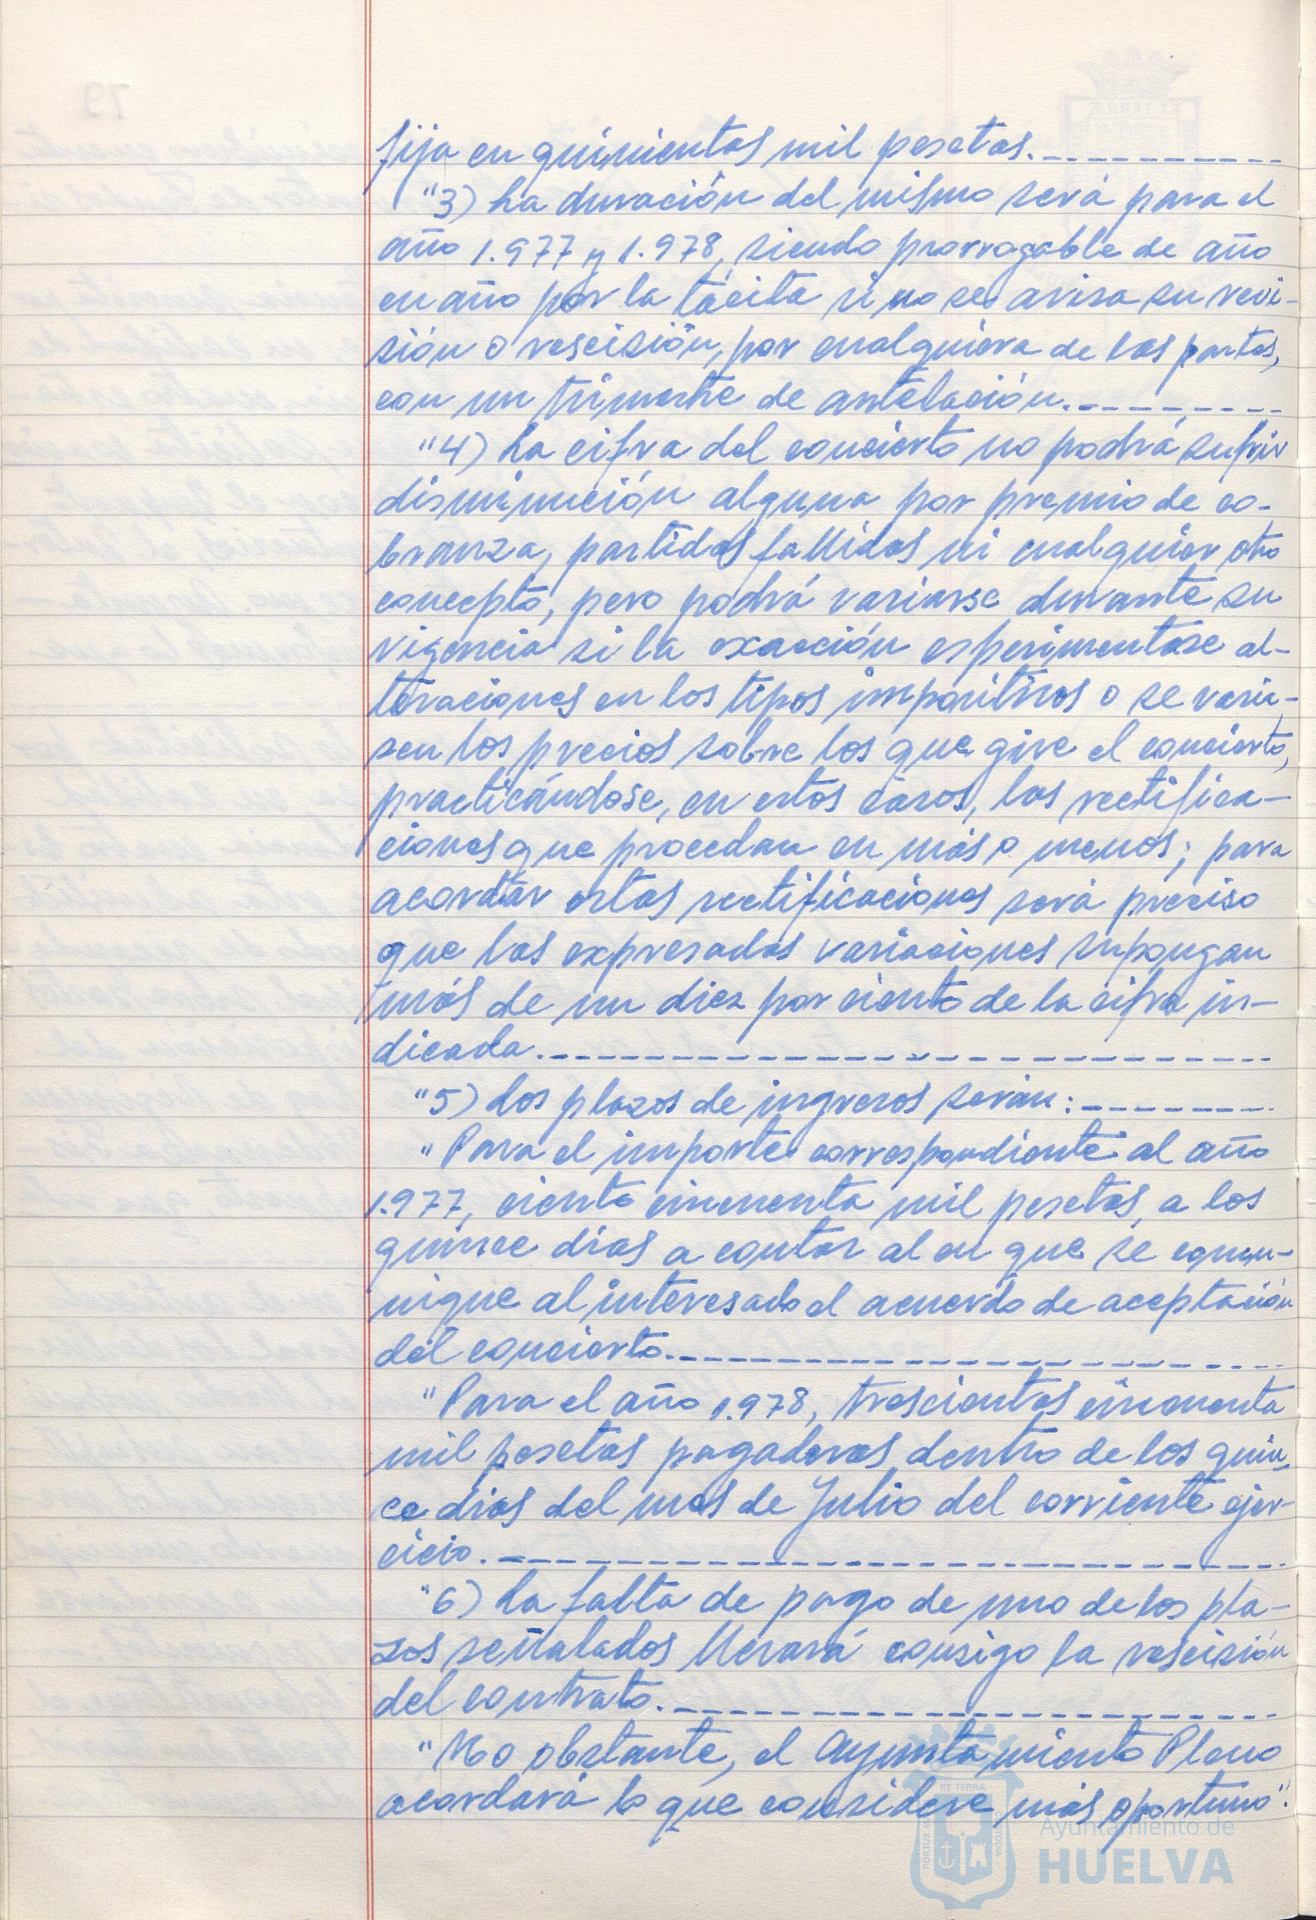 fija en quinientas mil pesetas.----------
"3) La duración del mismo será para el
año 1.977 y 1.978, siendo prorrogable de año
en año por la tácita si no se avisa su revi-
sión o rescisión, por cualquiera de las partes,
con un trimestre de antelación.---------
"4) La cifra del concierto no podrá sufrir
disminución alguna por premio de co-
branza, partidas fallidas ni cualquier otro
concepto, pero podrá variarse durante su
vigencia si la exacción esperimentase al-
teraciones en los tipos impositivos o se varia-
sen los precios sobre los que gire el concierto,
practicándose, en estos casos, las rectifica-
ciones que procedan en más o menos; para
acordar estas rectificaciones será preciso
que las expresadas variaciones supongan
más de un diez por ciento de la cifra in-
dicada.--------------------
"5) Los plazos de ingresos serán:---------
"Para el importe correspondiente al año
1.977, ciento cincuenta mil pesetas, a los
quince días a contar al en que se comu-
nique al interesado el acuerdo de aceptación
del concierto.--------------------
"Para el año 1.978, trescientas cincuenta
mil pesetas pagaderas dentro de los quin-
ce días del mes de Julio del corriente ejer-
cicio.------------------------
"6) La falta de pago de uno de los pla-
zos señalados llevará consigo la rescisión
del contrato.--------------------
"No obstante, el Ayuntamiento Pleno
acordará lo que considere más oportuno".
Ayuntamiento de
HUELVA